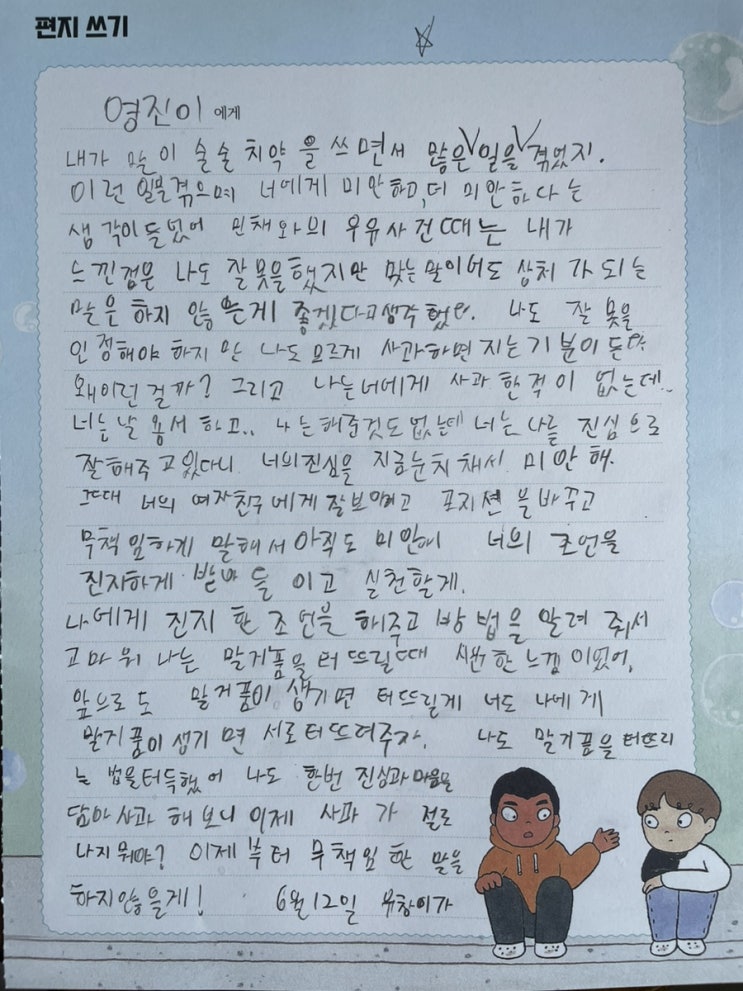 편지 쓰기
영진이 에게
내가 말이 술술 치약을 쓰면서 많은 일을 겪었지.
이런 일을 겪으며 너에게 미안하고, 더 미안하다는
생각이 들었어 민채와의 우유사건때는 내가
느낀점은 나도 잘못을 했지만 맞는 말이어도 상처가 되는
말은 하지 않는게 좋겠다고 생각했어. 나도 잘못을
인정해야 하지만 나도 모르게 사과하면 지는 기분이 든다
왜이런 걸까? 그리고 나는 너에게 사과 한적이 없는데..
너는 날 용서 하고.. 나는 해준것도 없는데 너는 나를 진심으로
잘해주고 있다니 너의 진심을 지금눈치채서 미안해.
그때 너의 여자친구에게 잘보이려고 포지션을 바꾸고
무책임하게 말해서 아직도 미안해 너의 조언을
진지하게 받아 들이고 실천할게.
나에게 진지한 조언을 해주고 방법을 알려 줘서
고마워 나는 말거품을 터뜨릴때 시원한 느낌이었어,
앞으로도 말거품이 생기면 터뜨릴게 너도 나에게
말거품이 생기면 서로터뜨려주자. 나도 말거품을 터뜨리
는 법을터득했어 나도 한번 진심과 마음을
담아 사과 해보니 이제 사과가 절로
나지 뭐야? 이제부터 무책임한 말을
하지않을게! 6월12일 유창이가